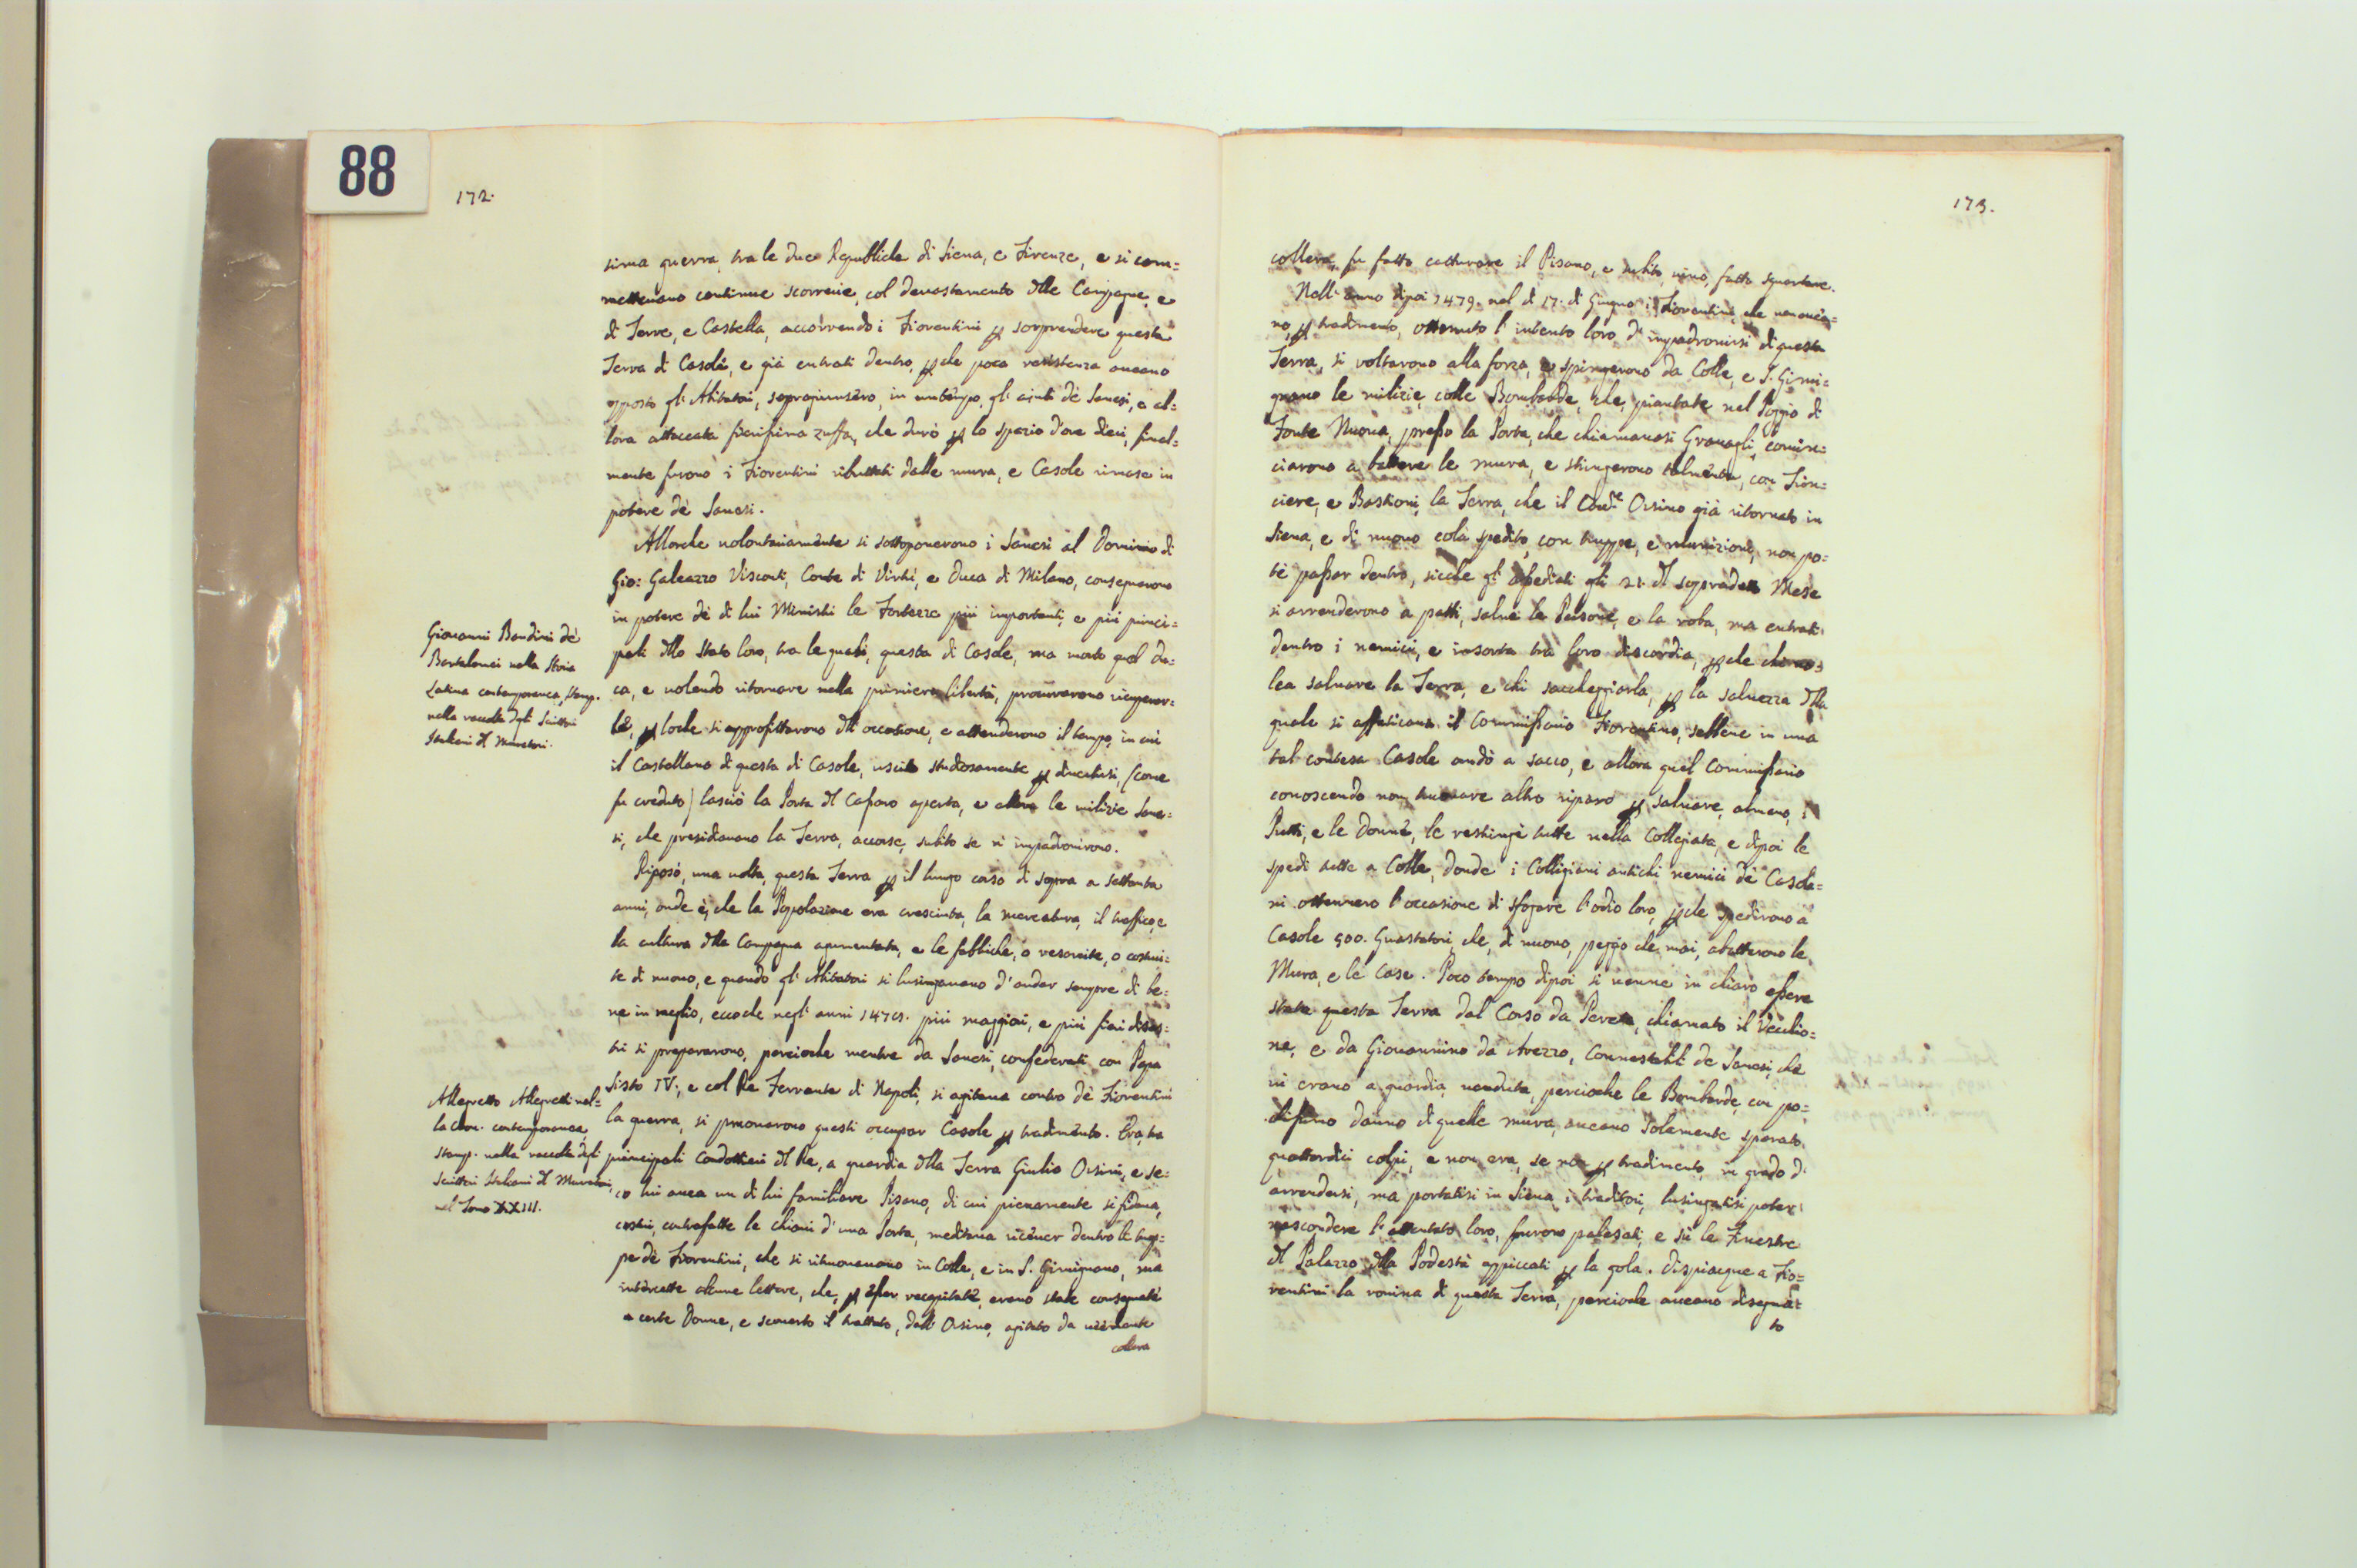 88
172.
sima guerra, tra le due Repubbliche di Siena, e Firenze, e si com=
mettevano continue scorrerie, col devastamento dlle Campagne, e
di Terre, e Castella, accorrendo i Fiorentini p sorprendere questa
Terra di Casole, e già entrati dentro, pche poca resistenza aveano
opposto gl' Abitatori, sopragiunsero, in un tempo, gl' ajuti de Sanesi, e al=
lora attaccata fierissima zuffa, che durò p lo spazio d'ore dieci, final=
mente furono i Fiorentini ributtati dalle mura, e Casole rimase in
potere de' Sanesi.
Allorche volontariamente si sottoponerono i Sanesi al Dominio di
Gio: Galeazzo Visconti, Conte di Virtù, e Duca di Milano, consegnarono
in potere de' di lui Ministri le Fortezze più importanti, e più princi=
pali dllo Stato loro, tra le quali, questa di Casole, ma morto quel Du=
ca, e volendo ritornare nella primiera libertà, procurarono ricuperar=
le, p loche si approfittarono dll' occasione, e attenderono il tempo, in cui
il Castellano di questa di Casole, uscito studiosamente p divertirsi, (come
fu creduto) lasciò la Porta dl Cassaro aperta, e allora le milizie Sane=
si, che presidiavano la Terra, accorse, subito se n' impadronirono.
Riposò, una volta, questa Terra p il lungo corso di sopra a settanta
anni, onde è, che la Popolazione era cresciuta, la mercatura, il traffico, e
la cultura dlla Campagna aumentata, e le fabbriche, o resarcite, o costrui=
te di nuovo, e quando gl' Abitatori si lusingavano d'andar sempre di be=
ne in meglio, eccoche negl' anni 1478. più maggiori, e più fieri disas=
tri si prepararono, percioche mentre da Sanesi, confederati con Papa
Sisto IV, e col Re Ferrante di Napoli, si agitava contro de' Fiorentini
la guerra, si provarono questi occupar Casole p tradimento. Era, tra
principali Condottieri dl Re, a guardia dlla Terra Giulio Orsini, e se=
co lui avea un di lui familiare Pisano, di cui pienamente si fidava,
costui, contrafatte le chiavi d'una Porta, meditava ricever dentro le trup=
pe de' Fiorentini, che si ritrovavano in Colle, e in S. Gimignano, ma
intercette alcune lettere, che, p esser recapitate, erano state consegnate
a certe Donne, e scoverto il trattato, dall' Orsino, agitato da
collera
Giovanni Bandini de'
Bartolomei nella Storia
Latina contemporanea, stamp.
nella raccolta degli Scrittori
Italiani dl Muratori.
Allegretto Allegretti nel=
la Cron. contemporanea,
stamp. nella raccolta degli
Scrittori Italiani dl Muratori,
nel Tomo XXIII.
173.
collera, fu fatto catturare il Pisano, e subito, vivo, fatto squartare.
Nell' anno dipoi 1479. nel dì 17. di Giugno i Fiorentini, che non avea=
no, p tradimento, ottenuto l' intento loro d' impadronirsi di questa
Terra, si voltarono alla forza, e spingerono da Colle, e S. Gimi=
gnano le milizie, colle Bombarde, che, piantate nel Poggio di
Fonte Nuova, presso la Porta, che chiamavasi Gravagli, comin=
ciarono a battere le mura, e stringerono talmente, con Trin=
ciere, e Bastioni, la Terra, che il Orsino già ritornato in
Siena, e di nuovo colà spedito, con truppe, e munizione, non po=
tè passar dentro, sicche gl' assediati gli 21. dl sopradetto Mese
si arrenderono a patti, salve le Persone, e la roba, ma entrati
dentro i nemici, e insorta tra loro discordia, pche chi vo=
lea salvare la Terra, e chi saccheggiarla, p la salvezza dlla
quale si affaticava il Commissario Fiorentino, sebbene in una
tal contesa Casole andò a sacco, e allora quel Commissario
conoscendo non trovare altro riparo p salvare, almeno, i
Putti, e le Donne, le restinge tutte nella Collegiata, e dipoi le
spedì tutte a Colle, donde i Colligiani antichi nemici de' Casola=
ni ottennero l'occasione di sfogare l'odio loro, pche spedirono a
Casole 500. Guastatori, che, di nuovo, peggio che mai, abatterono le
Mura, e le Case. Poco tempo dipoi si venne in chiaro essere
stata questa Terra dal Corso da Pereta, chiamato il Vecchio=
ne, e da Giovannino da Arezzo, Connestabili de Sanesi, che
vi erano a guardia, venduta, percioche le Bombarde, con po=
chissimo danno di quelle mura, aveano solamente sparato
quattordici colpi, e non era, se non p tradimento, in grado d'
arrendersi, ma portatisi in Siena, i traditori, lusingatisi poter
nascondere l' attentato loro, furono palesati, e su le Finestre
dl Palazzo dlla Podestà appiccati p la gola. Dispiacque a Fio=
rentini la rovina di questa Terra, percioche aveano disegna=
to